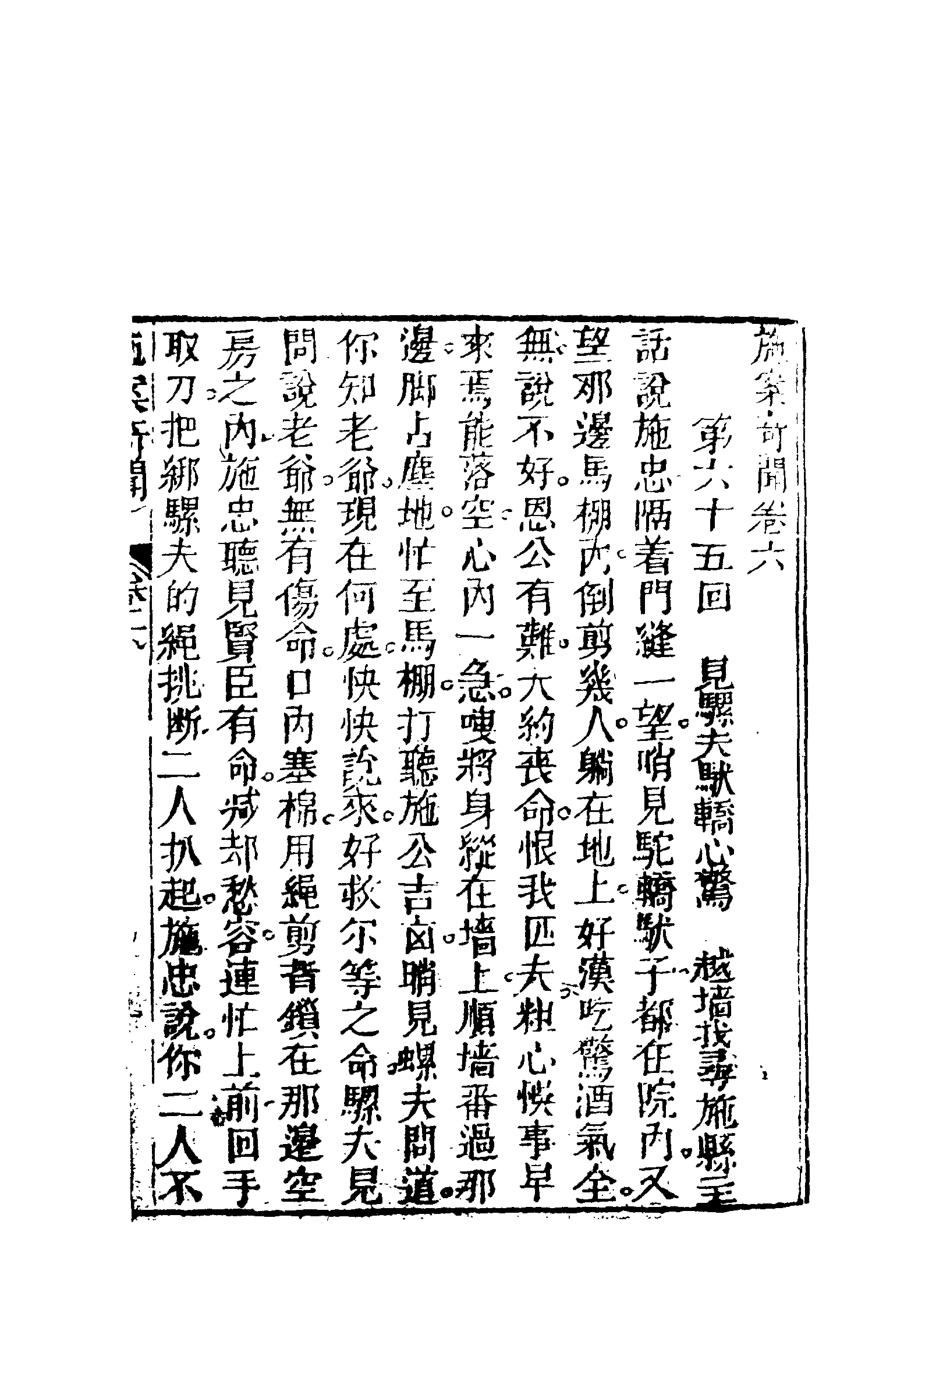 施案奇聞卷六
第六十五回　見騾夫馱轎心驚　越墻找尋施縣主
話說施忠隔着門縫一望。哨見駝轎馱子都在院內。又
望那邊馬棚內。倒剪幾人。躺在地上。好漢吃驚酒氣全。
無。說不好。恩公有難。大約丧命。恨我匹夫。粗心悞事早
來。焉能落空。心內一急。嗖將身縱在墻上順墻番過那
邊。脚占塵地。忙至馬棚。打聽施公吉凶。哨見螺夫問道。
你知老爺現在何處。快快說來。好救尔等之命。騾夫見
問說老爺。無有傷命。口內塞棉。用繩剪背鎖在那邊空
房之內。施忠聽見賢臣有命。减却愁容。連忙上前回手
取刀。把綁騾夫的繩挑断。二人扒起。施忠說。你二人不
施案奇聞　卷六